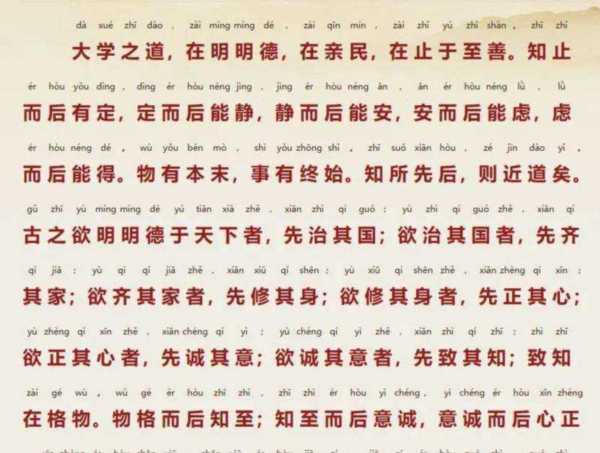 dà xué zhī dào， zài míng míng dé， zài qīn mín， zài zhǐ yú zhì shàn。 zhī zhǐ
大学之道，在明明德，在亲民，在止于至善。知止
ér hòu yǒu dìng， dìng ér hòu néng jìng， jìng ér hòu néng ān， ān ér hòu néng lǜ， lǜ
而后有定，定而后能静，静而后能安，安而后能虑，虑
ér hòu néng dé。 wù yǒu běn mò， shì yǒu zhōng shǐ。 zhī suǒ xiān hòu， zé jìn dào yǐ。
而后能得。物有本末，事有终始。知所先后，则近道矣。
gǔ zhī yù míng míng dé yú tiān xià zhě， xiān zhì qí guó； yù zhì qí guó zhě， xiān qí
古之欲明明德于天下者，先治其国；欲治其国者，先齐
qí jiā； yù qí qí jiā zhě， xiān xiū qí shēn； yù xiū qí shēn zhě， xiān zhèng qí xīn；
其家；欲齐其家者，先修其身；欲修其身者，先正其心；
yù zhèng qí xīn zhě， xiān chéng qí yì； yù chéng qí yì zhě， xiān zhì qí zhī； zhì zhī
欲正其心者，先诚其意；欲诚其意者，先致其知；致知
zài gé wù。 wù gé ér hòu zhī zhì； zhī zhì ér hòu yì chéng， yì chéng ér hòu xīn zhèng
在格物。物格而后知至；知至而后意诚，意诚而后心正